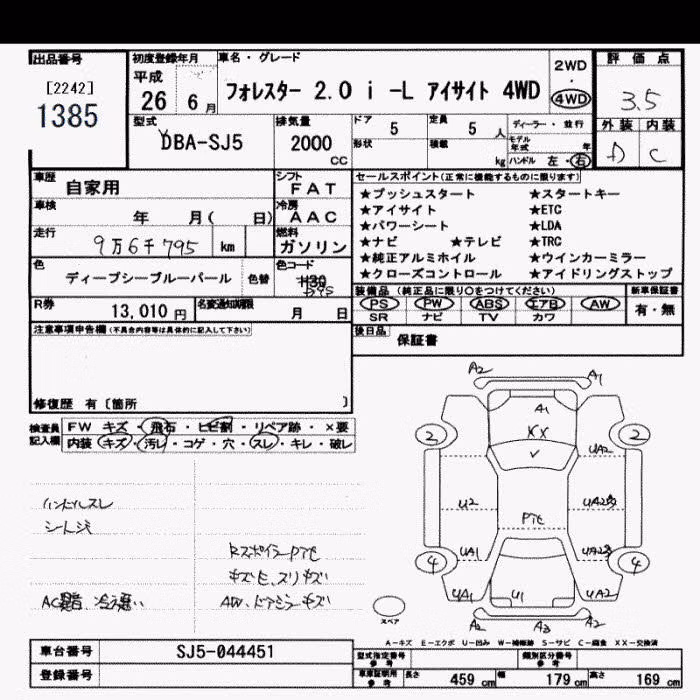 出品番号
[2242]
1385
初度登録年月
平成
26 6月
車名・グレード
フォレスター 2.0 i -L アイサイト 4WD
2WD
・
4WD
評価点
3.5
外装 内装
D C
型式
DBA-SJ5
排気量
2000
cc
ドア 5
形状
定員 5 人
積載 kg
ディーラー・並行
モデル年式 年
ハンドル 左・右
車歴
自家用
シフト
FAT
車検
年 月( 日)
冷房
AAC
走行
9万6千795 km
燃料
ガソリン
色
ディープシーブルーパール
色替
色コード
H30
R券
13,010円
名変通知期限
月 日
セールスポイント(正常に機能するものに限ります)
★プッシュスタート ★スタートキー
★アイサイト ★ETC
★パワーシート ★LDA
★ナビ ★テレビ ★TRC
★純正アルミホイル ★ウインカーミラー
★クローズコントロール ★アイドリングストップ
装備品(純正品に限り○をつけてください)
新車保証書
PS PW ABS エアB AW
SR ナビ TV カワ
有・無
後日品
保証書
注意事項申告欄(不具合内容等は具体的に記入して下さい)
修復歴 有〔箇所 〕
検査員記入欄
FW キズ・飛石・ヒビ割・リペア跡・×要
内装・キズ・汚レ・コゲ・穴・スレ・キレ・破レ
ハンドルスレ
シートシミ
RスポイラーPTモ
キズモ、スリキズ
AC異音、冷え悪い
AW、ドアミラーキズ
A2 A1
A1
XX
✓
2 2
UA2
U2 UA2多
PTモ
UA1 UA2多
4 4
UA1 U1 UA2
A2 A3 A2
スペア
A-キズ E-エクボ U-凹み W-補修跡 S-サビ C-腐食 XX-交換済
車台番号
SJ5-044451
登録番号
型式指定番号
参考
類別区分番号
参考
車庫証明用
参考
長さ 459 cm 幅 179 cm 高さ 169 cm